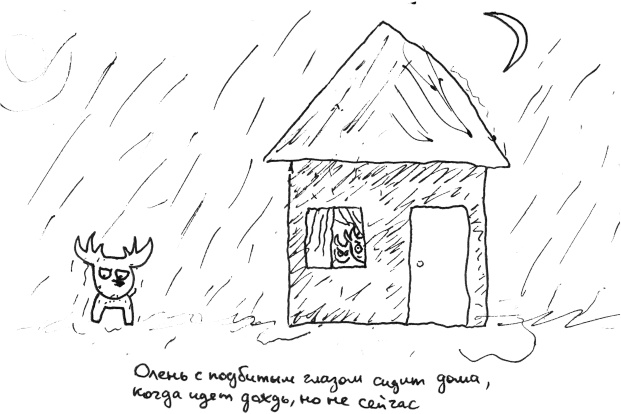 Олень с подбитым глазом сидит дома,
когда идет дождь, но не сейчас